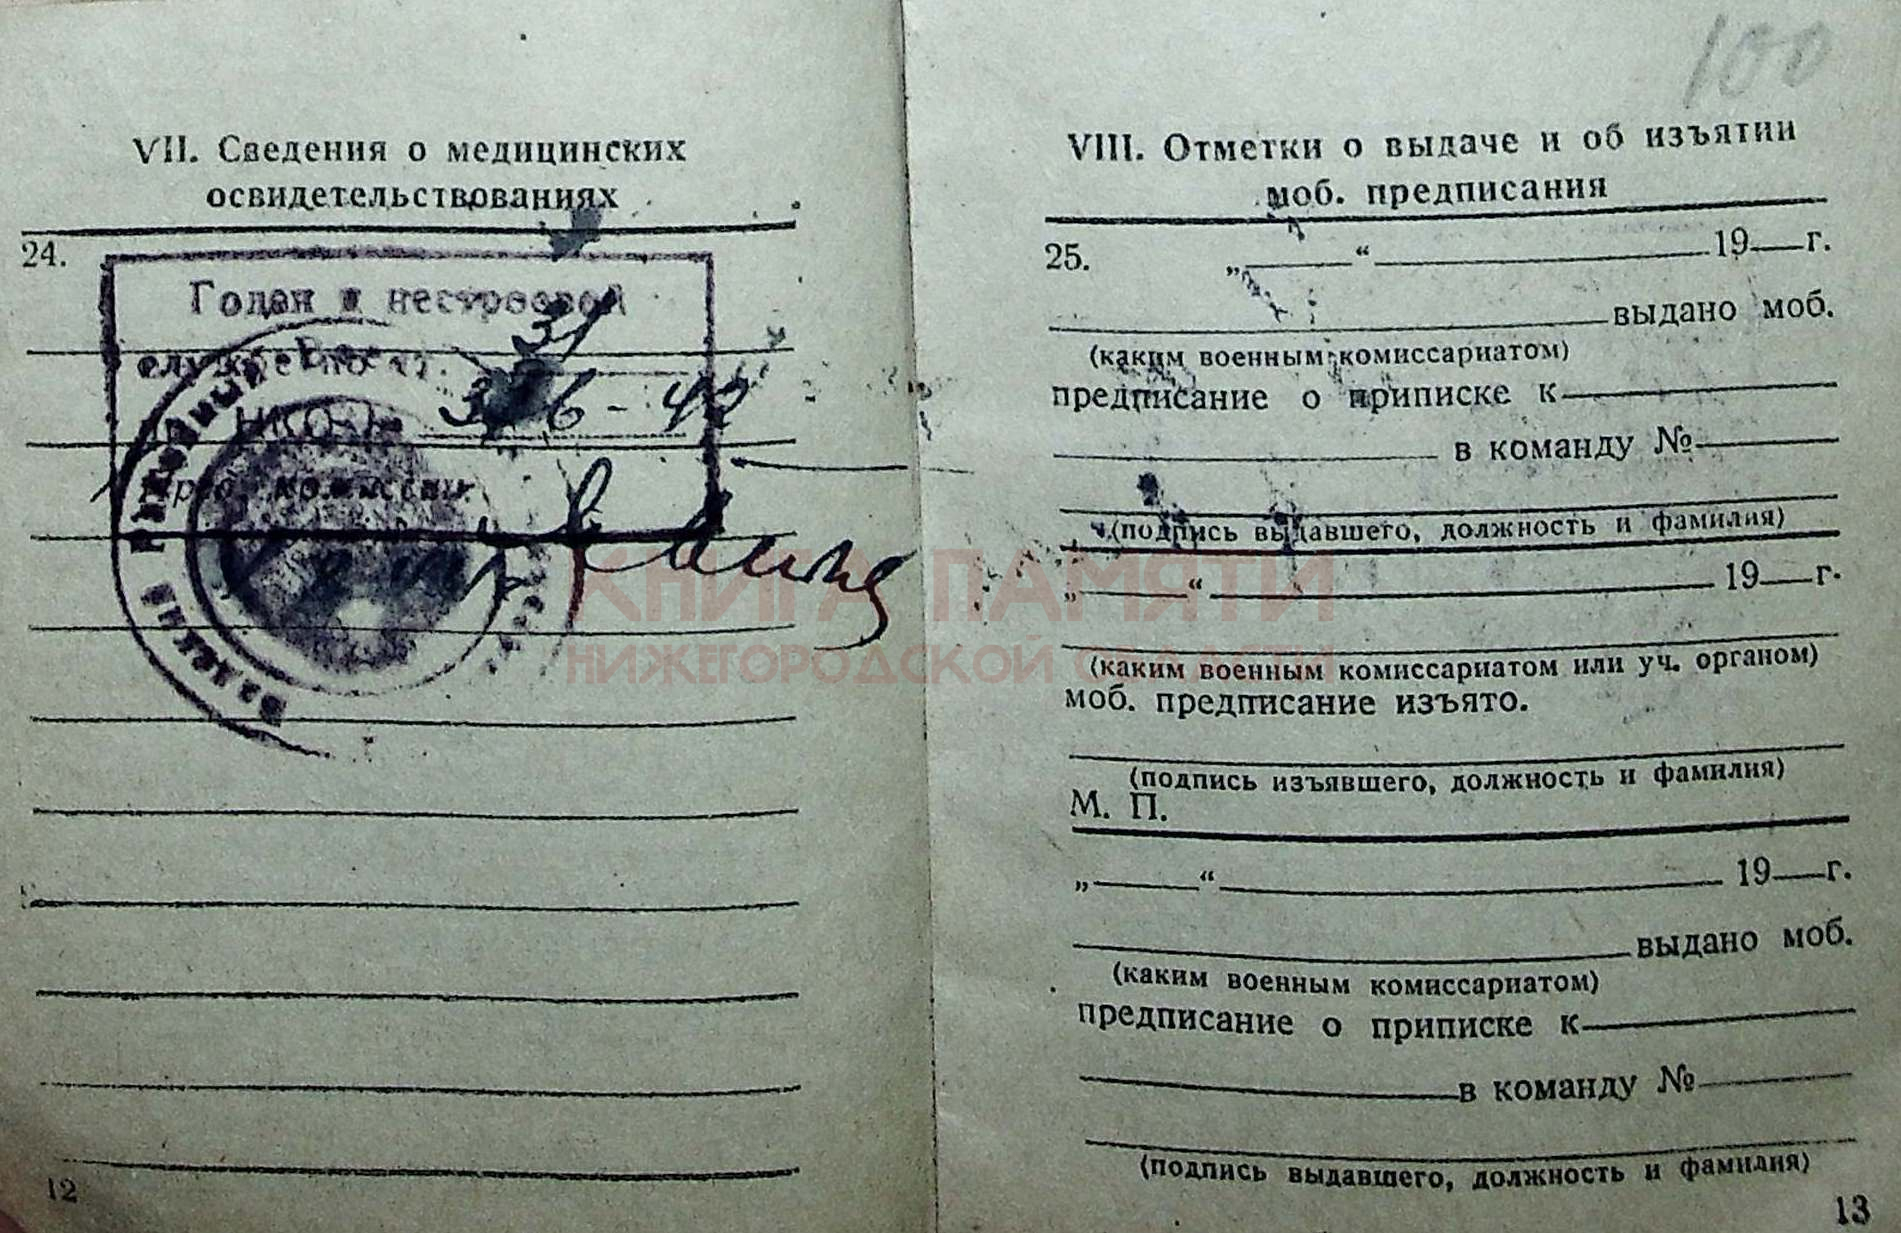 100
VII. Сведения о медицинских
освидетельствованиях
24.
Годен к нестроевой
службе по ст. 31
НКО №
3 6 - 42
Пред. комиссии
12
VIII. Отметки о выдаче и об изъятии
моб. предписания
25. „ “ 19 г.
выдано моб.
(каким военным комиссариатом)
предписание о приписке к
в команду №
(подпись выдавшего, должность и фамилия)
„ “ 19 г.
(каким военным комиссариатом или уч. органом)
моб. предписание изъято.
(подпись изъявшего, должность и фамилия)
М. П.
„ “ 19 г.
выдано моб.
(каким военным комиссариатом)
предписание о приписке к
в команду №
(подпись выдавшего, должность и фамилия)
13
КНИГА ПАМЯТИ
НИЖЕГОРОДСКОЙ ОБЛАСТИ